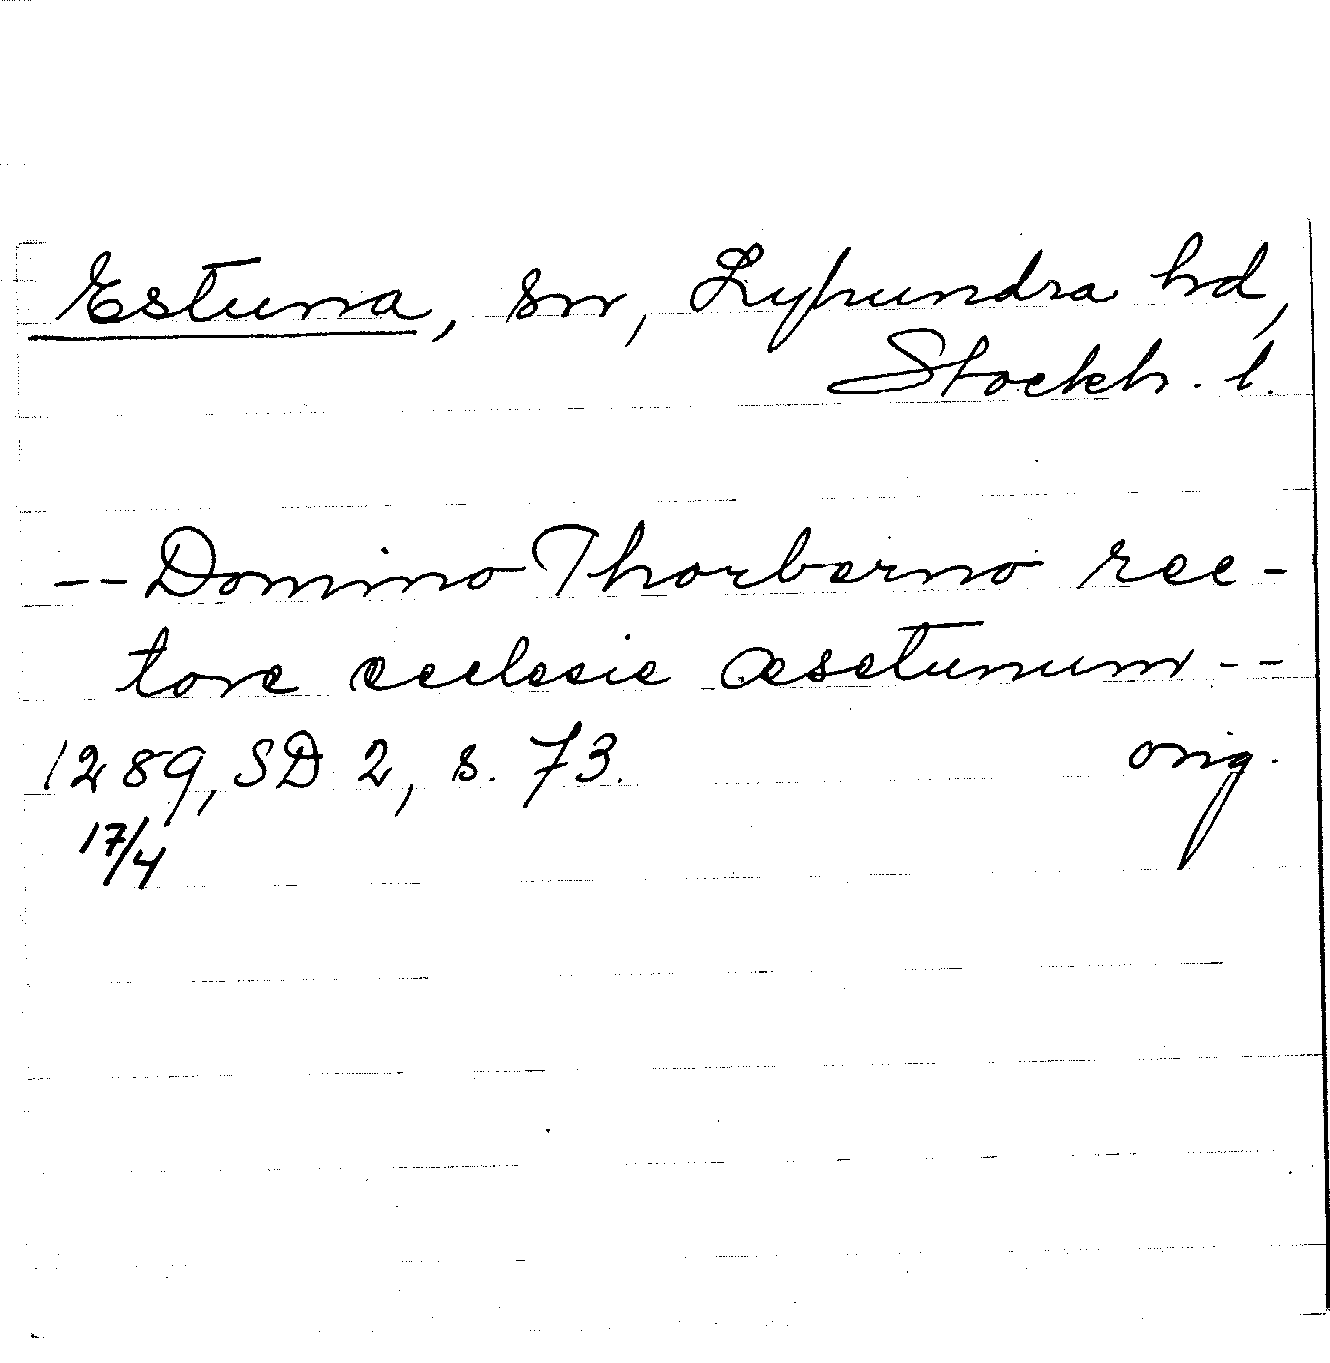 Estuna, sn, Lyhundra hd,
Stockh. l.
-- Domino Thorberno rec-
tore ecclesie æsetunum --
1289, SD 2, s. 73. orig.
17/4